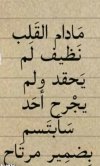 مَادام القَلب
نَظيف لَم
يَحقد ولم
يجْرح أحَد
سَأبتَسم
بِضمِير مرتَاح